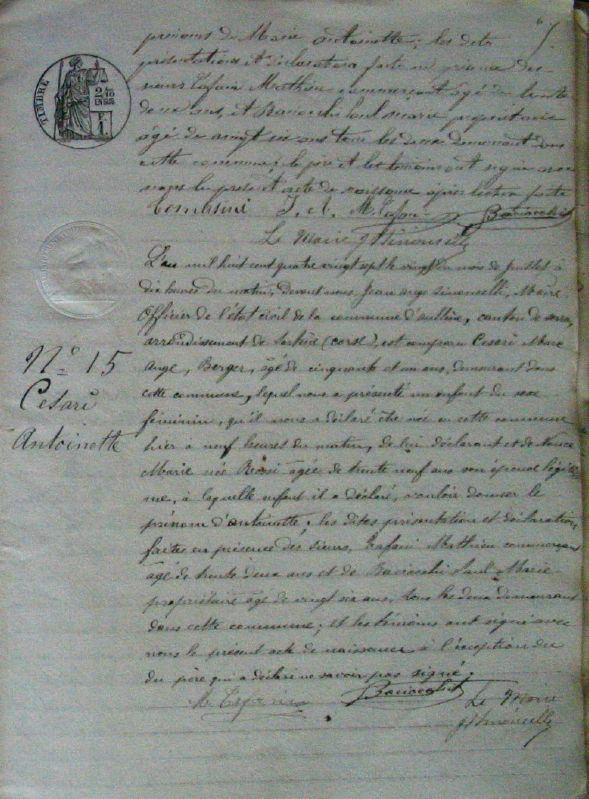 prénoms de Marie Antoinette; les dites
présentations et déclaration faite en présence des
sieurs Tafani Mathieu commerçant âgé de trente
deux ans, et Baciocchi Paul Marie propriétaire
âgé de vingt six ans tous les deux demeurant dans
cette commune; le père et les témoins ont signé avec
nous le présent acte de naissance après lecture faite
Tomasini J. A. M. Tafani Baciocchi
Le Maire JASimonselli
TIMBRE
L'an mil huit cent quatre vingt sept le vingt du mois de Juillet à
dix heures du matin, devant nous Jean Ange Simonselli, Maire
Officier de l'état civil de la commune d'aullène, canton de serra,
arrondissement de Sartène (corse), est comparu Cesari Marc
Ange, Berger, âgé de cinquante et un ans, demeurant dans
cette commune, lequel nous a présenté un enfant du sexe
féminin, qu'il nous a déclaré être née en cette commune
hier à neuf heures du matin, de lui déclarant et de
Marie née âgée de trente neuf ans son épouse légiti
me, à laquelle enfant il a déclaré, vouloir donner le
prénom d'antoinette; les dites présentation et déclaration
faites en présence des sieurs, Tafani Mathieu commerçant
âgé de trente deux ans et de Baciocchi Paul Marie
propriétaire âgé de vingt six ans, tous les deux demeurant
dans cette commune; et les témoins ont signé avec
nous le présent acte de naissance à l'exception du
du père qui a déclaré ne savoir pas signé;
M. Tafani Baciocchi Le Maire
JASimonselli
N° 15
Cesari
Antoinette